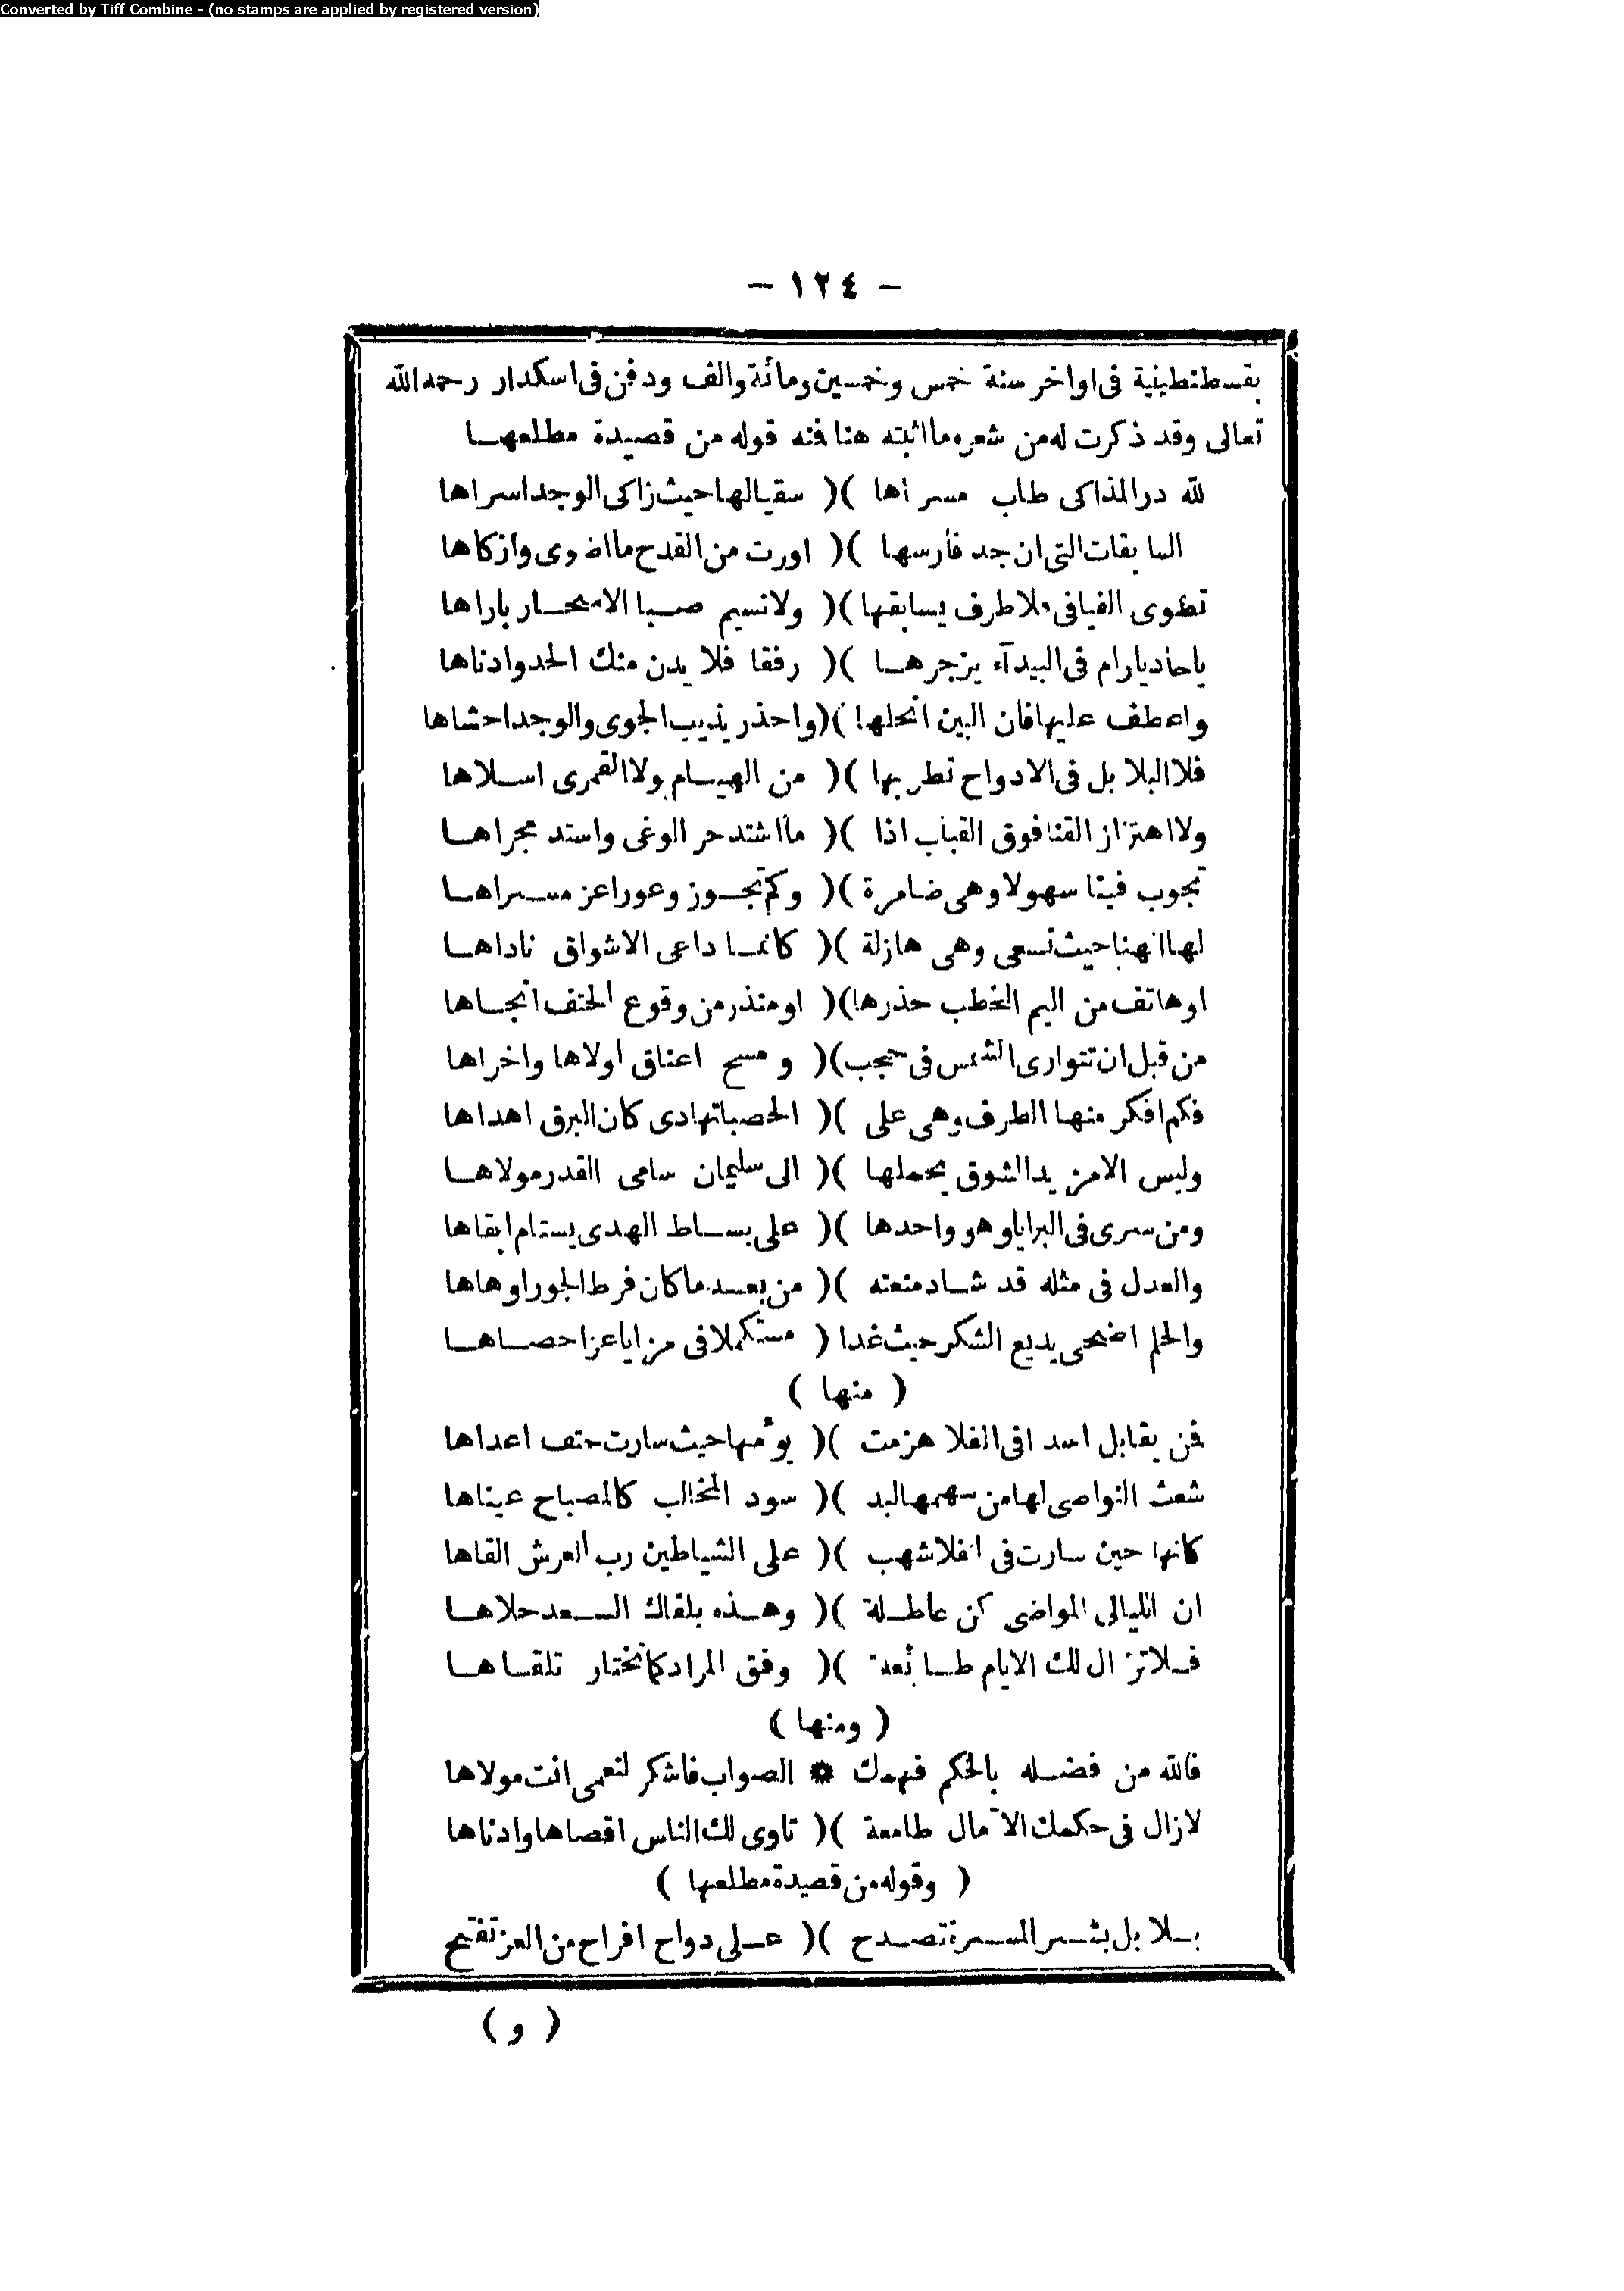 Converted by Tiff Combine - (no stamps are applied by registered version)
- ١٢٤ -
بقسطنطينية فى اواخر سنة خمس وخمسين ومائة والف ودفن فى اسكدار رحمه الله
تعالى وقد ذكرت له من شعره ما اثبته هنا فمنه قوله من قصيدة مطلعها
لله در المذاكى طاب مسراها )( سقيا لها حيث زاكى الوجد اسراها
السابقات التى ان جد فارسها )( اورت من القدح ما اضوى وازكاها
تطوى الفيافى فلا طرف يسابقها )( ولا نسيم صبا الاسحار باراها
يا حاديا رام فى البيدآء يزجرها )( رفقا فلا يدن منك الحدو ادناها
واعطف عليها فان البين انحلها )( واحذر يذيب الجوى والوجد احشاها
فلا البلابل فى الادواح تطربها )( من الهيام ولا القمرى اسلاها
ولا اهتزاز القنا فوق القباب اذا )( ما اشتد حر الوغى واستد مجراها
تجوب فينا سهولا وهى ضامرة )( وكم تجوز وعورا عز مسراها
لها انهنا حيث تسعى وهى هازلة )( كانما داعى الاشواق ناداها
او هاتف من اليم الخطب حذرها )( او منذر من وقوع الحتف انجاها
من قبل ان تتوارى الشمس فى حجب )( و مسح اعناق اولاها واخراها
فكم افكر منها الطرف وهى على )( الحصبا تهادى كان البرق اهداها
وليس الا مزيد الشوق يحملها )( الى سليمان سامى القدر مولاها
ومن سرى فى البرايا وهو واحدها )( على بساط الهدى يستام ابقاها
والعدل فى مثله قد شاد منعته )( من بعد ما كان فرط الجور اوهاها
والحلم اضحى يديع الشكر حيث غدا ( مستكملا فى مزايا عز احصاها
( منها )
فمن يقابل اسدا فى الفلا هزمت )( يؤمها حيث سارت حتف اعداها
شعث النواصى لها من سهمها لبد )( سود المخالب كالمصباح عيناها
كانها حين سارت فى الفلا شهب )( على الشياطين رب العرش القاها
ان الليالى المواضى كن عاطلة )( وهذه بلقاك السعد حلاها
فلا تزال لك الايام طائعة )( وفق المراد كما تختار تلقاها
( ومنها )
فالله من فضله بالحكم فهمك * الصواب فاشكر لنعمى انت مولاها
لازال فى حكمك الآمال طامعة )( تاوى لك الناس اقصاها وادناها
( وقوله من قصيدة مطلعها )
بلابل بشر المسرة تصدح )( على دواح افراح من العز تفتح
( و )